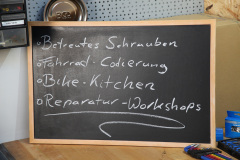 o Betreutes Schrauben
o Fahrrad-Codierung
o Bike-Kitchen
o Reparatur-Workshops